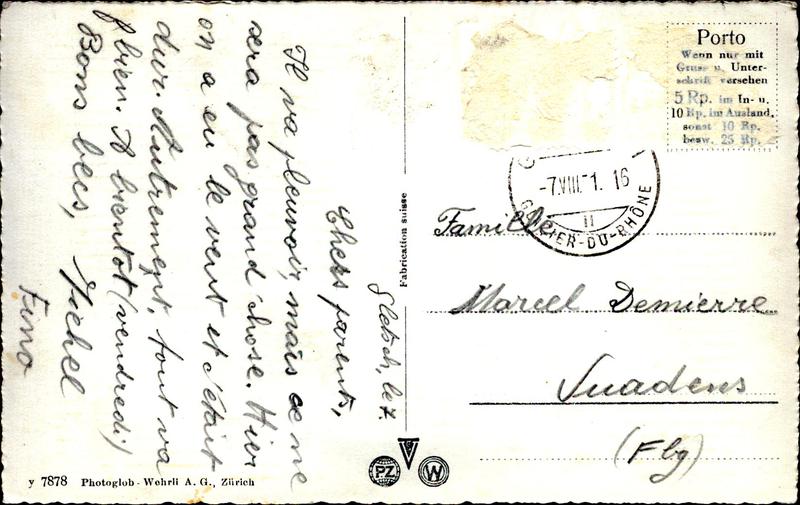 Gletsch, le 7
Chers parents,
Il va pleuvoir, mais ce ne
sera pas grand'chose. Hier
on a eu le vent et c'était
dur. Autrement, tout va
bien. A bientôt (vendredi)
Bons becs,
Michel
Porto
Wenn nur mit
Gruss u. Unter-
schrift versehen
5 Rp. im In- u.
10 Rp. im Ausland,
sonst 10 Rp.
bezw. 25 Rp.
-7.VIII. 1. 16
II
GLACIER-DU-RHÔNE
Famille
Marcel Demierre
Vuadens
(Fbg)
Fabrication suisse
PZ
W
y 7878 Photoglob - Wehrli A. G., Zürich